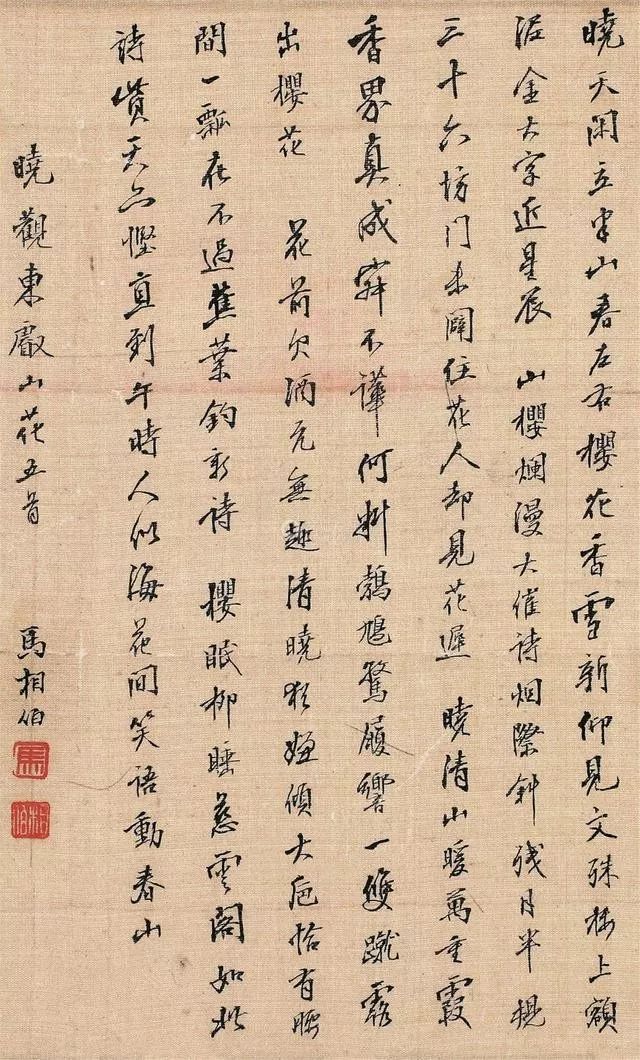 曉天閑立半山春左右櫻花香雪新仰見文殊樓上額
泥金大字近星辰 山櫻爛漫大催诗烟際斜残月半規
三十六坊门未闢住花人却見花遲 曉清山暖萬重霞
香界真成寂不譁何料鵓鳩驚履響一雙蹴露
出櫻花 花前欠酒元無趣清曉猶嫌傾大卮恰有腰
間一瓢在不過蕉葉釣新诗 櫻眠柳睡慈雲閣如此
詩賞天亦慳直到午時人似海花间笑语動春山
曉觀東巖山花五首 馬相伯
馬
相伯